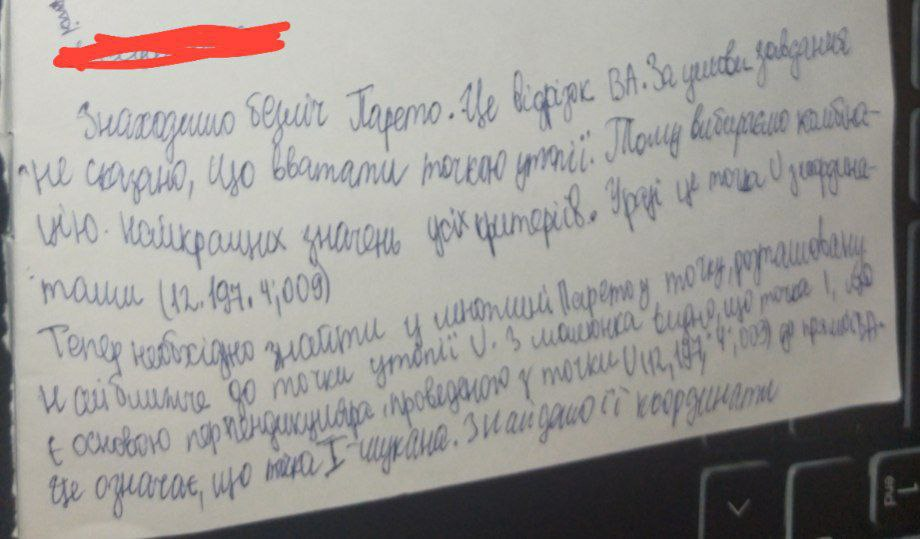 Знаходимо безліч Парето. Це відрізок ВА. За умови завдання
не сказано, що вважати точкою утопії. Тому вибираємо комбіна-
цію найкращих значень усіх критеріїв. У разі це точка U з координа-
тами (12.197.4;009)
Тепер необхідно знайти у множині Парето у точку, розташовану
найближче до точки утопії U. З малюнка видно, що точка І, що
є основою перпендикуляра, проведеного у точки U(12,197,4;,009) до прямої ВА.
Це означає, що точка І-шукана. Знайдемо її координати
end